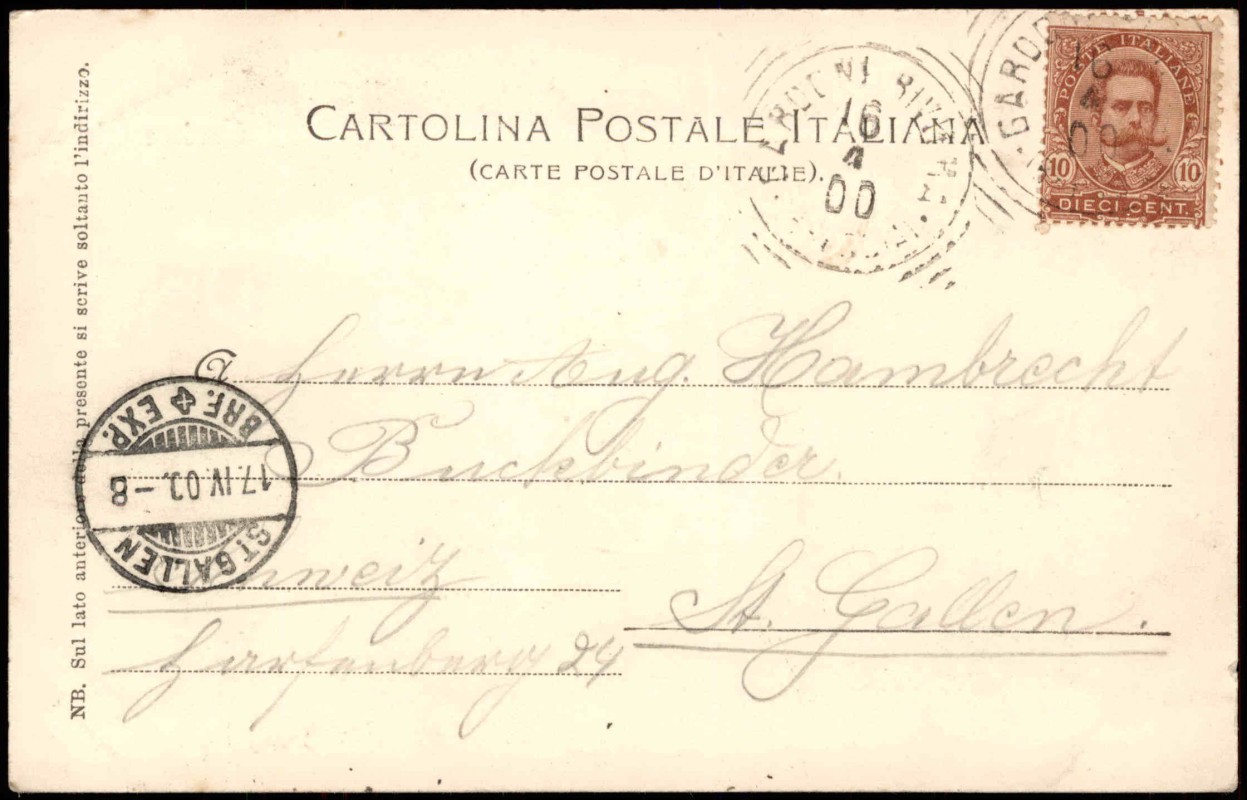 CARTOLINA POSTALE ITALIANA
(CARTE POSTALE D'ITALIE).
16
4
00
GARDO
16
4
00
POSTE ITALIANE
10 10
DIECI CENT.
NB. Sul lato anteriore della presente si scrive soltanto l'indirizzo.
A Herrn Aug. Hambrecht
Buchbinder.
Schweiz
St. Gallen.
Harfenberg 24
BRF. EXP.
17.IV.00.–8
ST. GALLEN